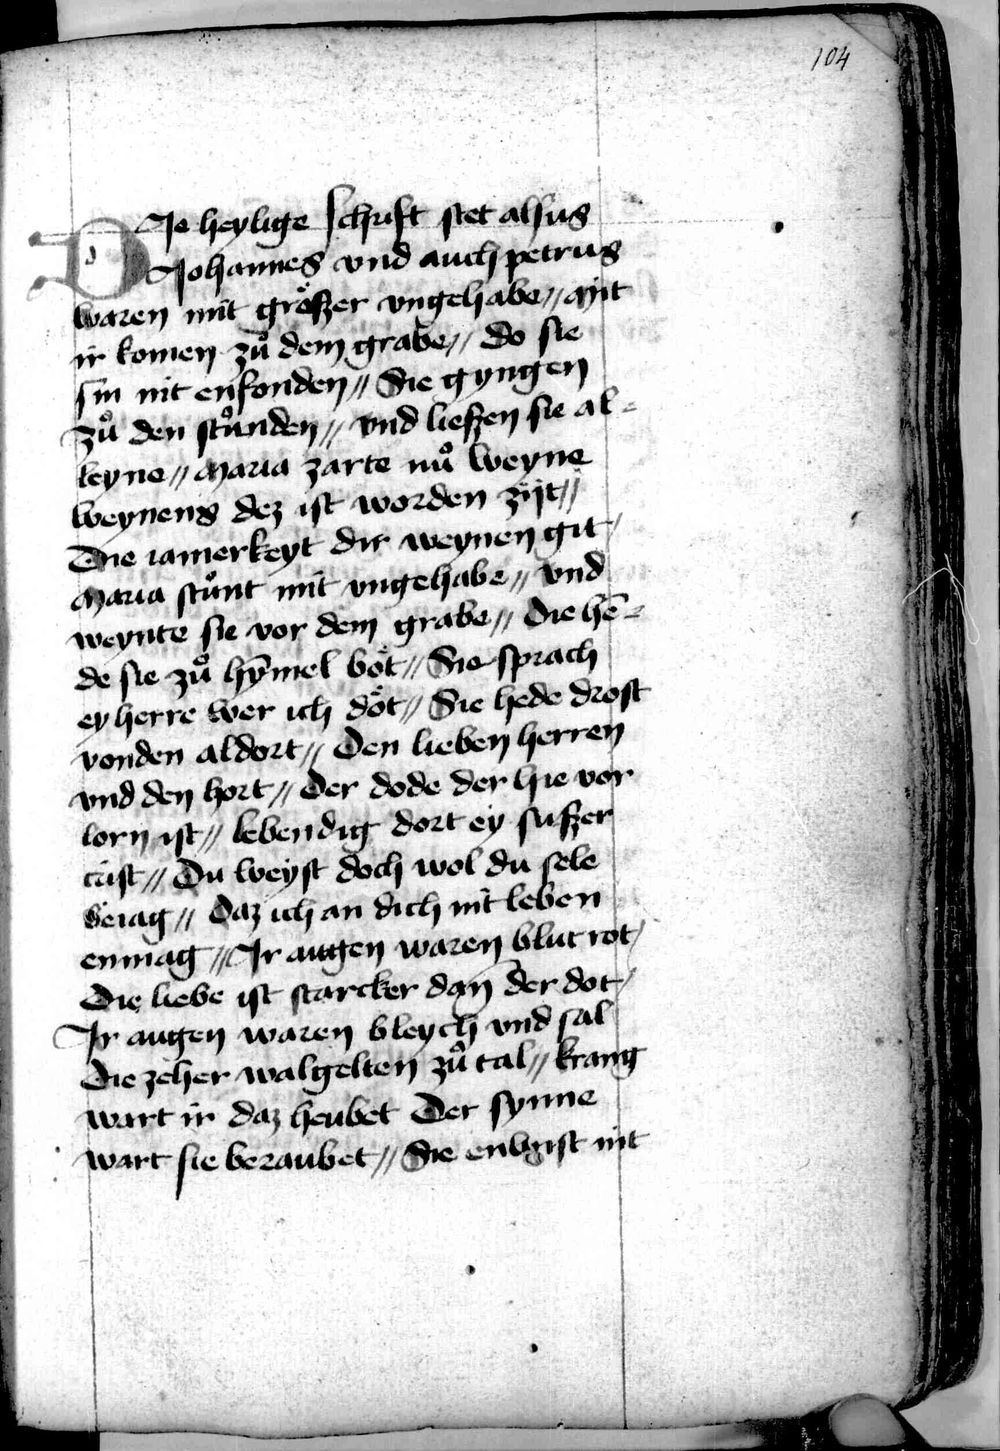 104
DIe heylige schrift stet alsus
Johannes vnd auch petrus
waren mit größer vngehabe // Mit
ir komen zů dem grabe // Do sie
sin nit enfonden // Sie gyngen
zů den stůnden // vnd ließen sie al-
leyne // Maria zarte nů weyne
weynens dez ist worden zijt //
Die iamerkeyt dir weynen git /
Maria stůnt mit vngehabe // vnd
weynte sie vor dem grabe // Die hē-
de sie zů hȳmel böt // Sie sprach
ey herre wer ich döt // Sie hede drost
vonden aldort // Den lieben herren
vnd den hort // Der dode der hie vor
lorn ist // lebendig dort ey sußer
crist // Du weyst doch wol du sele
beiag // Daz ich an dich nit leben
enmag // Ir augen waren blut rot /
Die liebe ist starcker dan̄ der dot /
Ir augen waren bleych vnd sal
Die zeher walgelten zů tal // krang
wart ir daz heubet Der synne
wart sie beraubet // Sie enwist nit